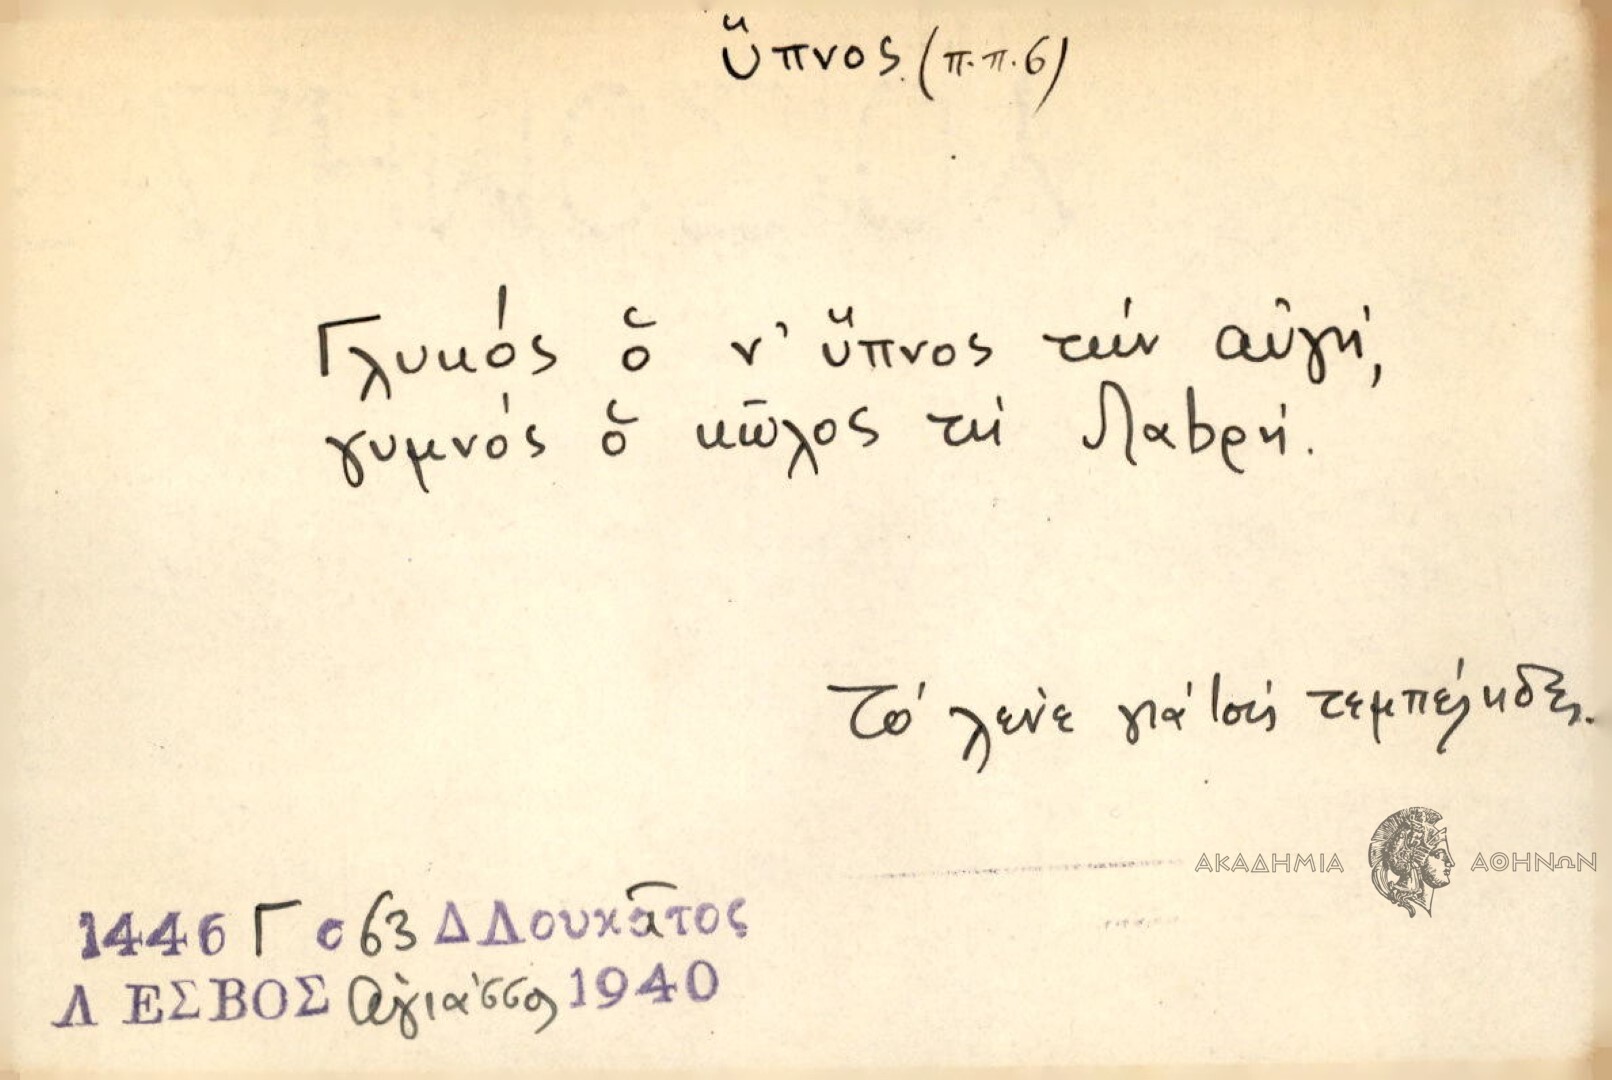 ὕπνος (π.π.6)
Γλυκός ὁ ν' ὕπνος τήν αὐγή,
γυμνός ὁ κῶλος τή Λαbρή.
Τό λένε γιά τσί τεμπέληδες.
ΑΚΑΔΗΜΙΑ ΑΘΗΝΩΝ
1446 Γ σ 63 Δ Λουκᾶτος
ΛΕΣΒΟΣ Ἁγιάσσος 1940